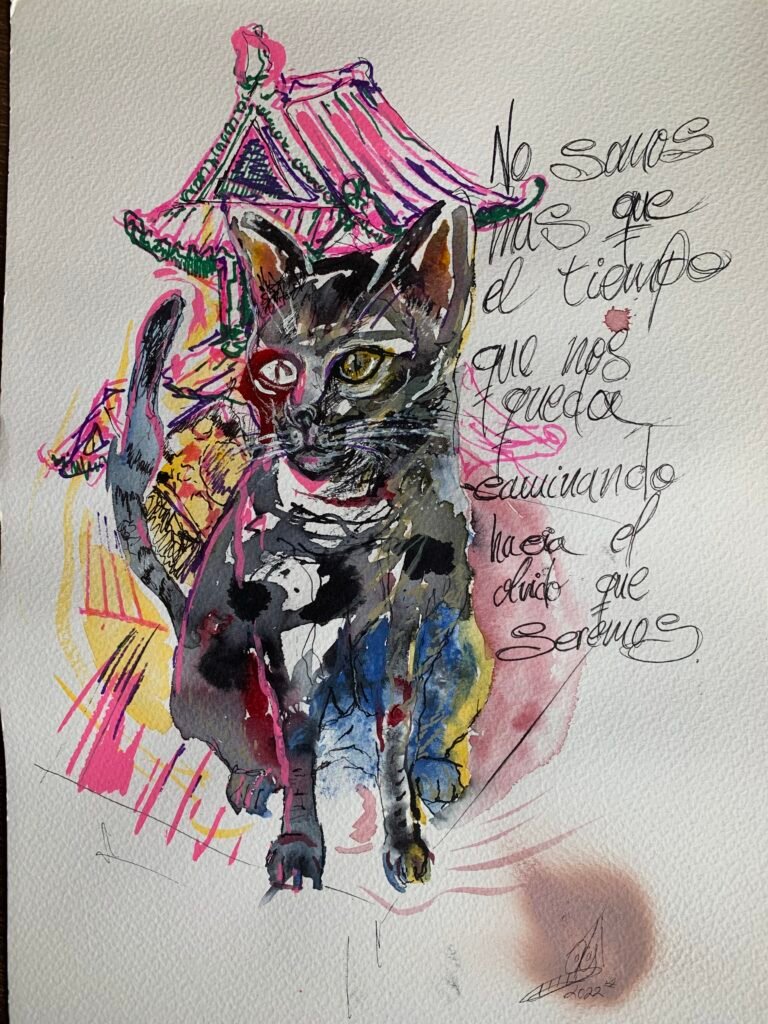 No somos
mas que
el tiempo
que nos
queda
caminando
hacia el
olvido que
seremos.
2022